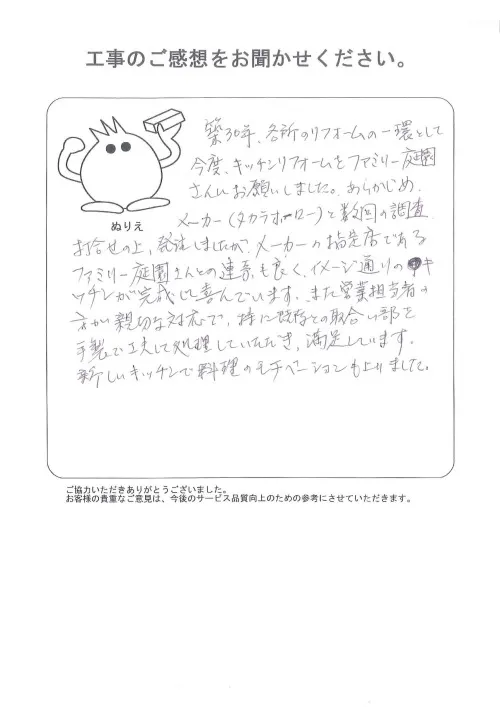 工事のご感想をお聞かせください。
築30年、各所のリフォームの一環として
今度、キッチンリフォームをファミリー庭園
さんにお願いしました。あらかじめ、
ぬりえ
メーカー(タカラスタンダード)と数回の調査
打合せの上、発注しましたが、メーカーの指定店である
ファミリー庭園さんとの連携も良く、イメージ通りのキ
ッチンが完成し喜んでいます。また営業担当者の
方が親切な対応で、特に既存との取合い部を
手製で工夫して処理していただき、満足しています。
新しいキッチンで料理のモチベーションも上りました。
ご協力いただきありがとうございました。
お客様の貴重なご意見は、今後のサービス品質向上のための参考にさせていただきます。